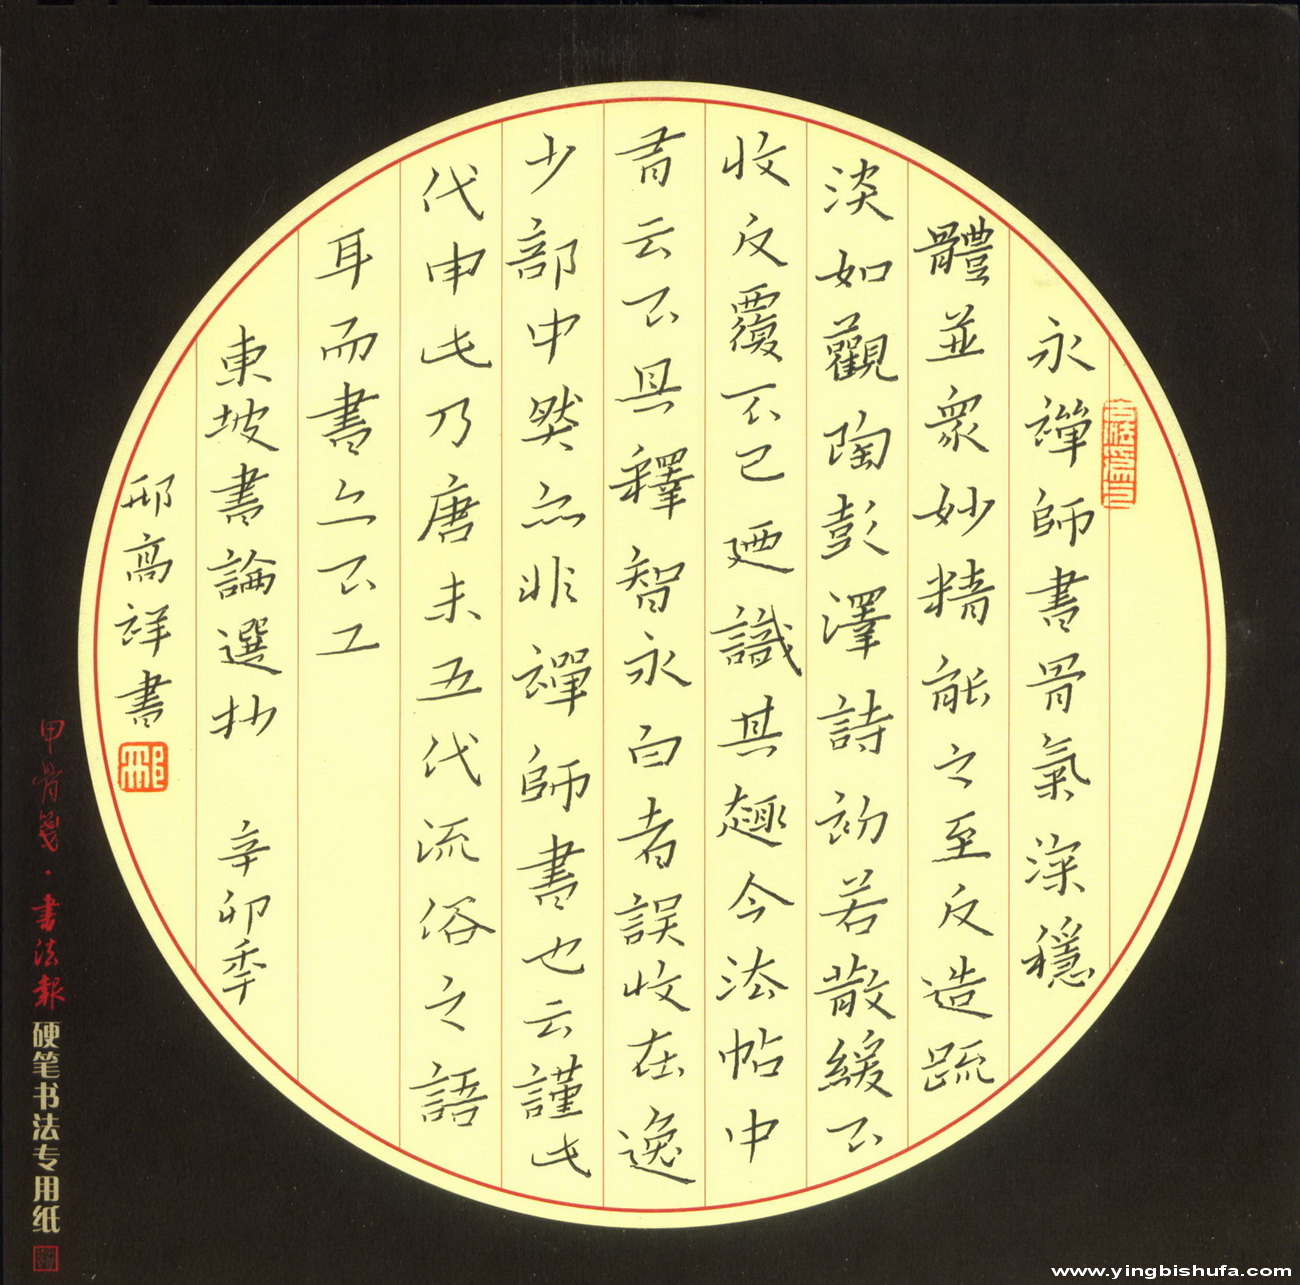 永禪師書骨氣深穩
體並衆妙精能之至反造疏
淡如觀陶彭澤詩初若散緩不
收反覆不已廼識其趣今法帖中
有云不具釋智永白者誤收在逸
少部中然亦非禪師書也云謹此
代申此乃唐末五代流俗之語
耳而書亦不工
東坡書論選抄 辛卯季
邢高祥書
邢
甲骨箋·書法報
硬笔书法专用纸
www.yingbishufa.com